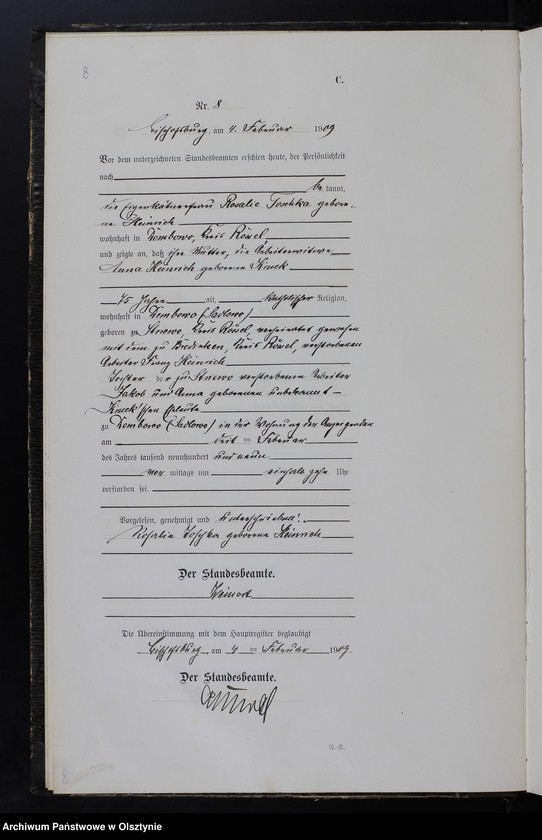 8
C.
Nr. 8
Bischofsburg, am 4. Februar 1909
Vor dem unterzeichneten Standesbeamten erschien heute, der Persönlichkeit
nach
be kannt,
die Eigenkätnerfrau Rosalie Toschka gebore-
ne Heinrich
wohnhaft in Dembowo, Kreis Rössel
und zeigte an, daß ihre Mutter, die Arbeiterwitwe
Anna Heinrich geborene Kinck
75 Jahre alt, katholischer Religion,
wohnhaft in Dembowo (Sadlowo)
geboren zu Striewo, Kreis Rössel, verheiratet gewesen
mit dem zu Bredinken, Kreis Rössel, verstorbenen
Arbeiter Franz Heinrich
Tochter der zu Striewo verstorbenen Arbeiter
Jakob und Anna geborenen unbekannt -
Kinck'schen Eheleute
zu Dembowo (Sadlowo) in der Wohnung der Anzeigenden
am ten Februar
des Jahres tausend neunhundert und neun
vor mittags um einhalb zehn Uhr
verstorben sei.
Vorgelesen, genehmigt und unterschrieben.
Rosalie Toschka geborene Heinrich
Der Standesbeamte.
Weinert
Die Übereinstimmung mit dem Hauptregister beglaubigt
Bischofsburg, am 4 ten Februar 1909.
Der Standesbeamte.
N.-R.
8
Archiwum Państwowe w Olsztynie